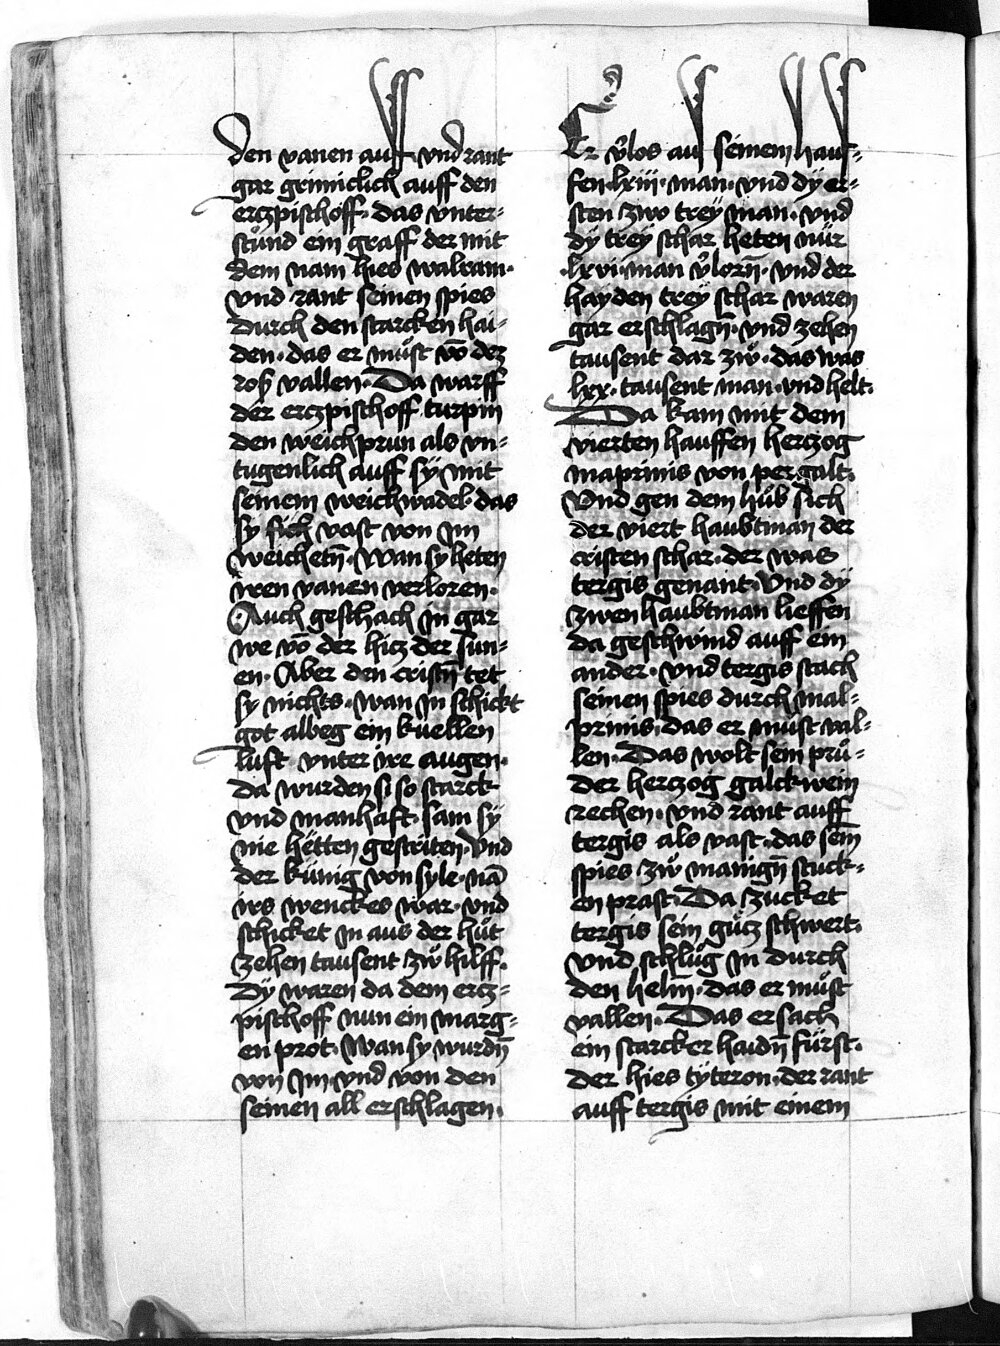 den vanen auff· vnd rant
gar grimiclich auff den
erczpischoff· das vnter-
stůnd ein graff der mit
dem nam hies walram·
vnd rant seinen spies
durch den starcken hai-
den· das er můst vō dez
roß vallen· Da warff
der erczpischoff turpin
den weichprun als vn-
tugenlich auff sÿ mit
seinem weichwadel· das
sy sich vast von im
weichetn̄· Wan sy heten
iren vanen verloren·
Auch geschach in gar
we vō der hicz der sun-
en· Aber den cristn̄ tet
sy nichts· wan in schickt
got albeg ein kuellen
luft vnter ire augen·
da wurden si so starck
vnd manhaft· sam sÿ
nie hetten gestriten· Vnd
der künig von syle· nā
irs wenckes war· vnd
schicket in aus der hůt
zehen tausent zů hilff·
Dy waren da dem ercz-
pischoff nun ein marg-
en prot· Wan sy wurdn̄
von im· vnd von den
seinen all erschlagen·
Er v̓los auß seinem hauf-
fen· lxiii· man· vnd dÿ er-
sten zwo treÿ man· vnd
dÿ treÿ schar heten nür
·lxvi· man v̓lorn̄· vnd der
hayden treÿ schar waren
gar erschlagn̄· vnd zehen
tausent dar zů· das was
lxx· tausent man· vnd helt·
Da kam mit dem
vierten hauffen herczog
maprimis von pergalt·
Vnd gen dem hůb sich
der viert haubtman der
cristen schar· der was
tergis genant· Vnd dÿ
zwen haubtman lieffen
da geschwind auff ein
ander· vnd tergis stach
seinen spies durch mal-
primis· das er must val-
len· Das wolt sein prů-
der herczog galckwein
rechen· vnd rant auff
tergis als vast· das sein
spies zů manign̄ stuck-
en prast· Da zucket
tergis sein gůtz schwert·
vnd schlůg in durch
den helm· das er můst
vallen· Das ersach
ein starcker haidn̄ fürst·
der hies tÿteron· der rant
auff tergis mit einem